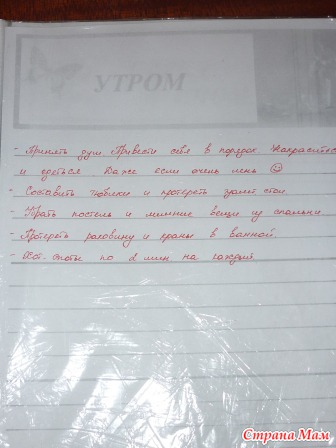 УТРОМ
- Принять душ. Привести себя в порядок. Накраситься
и одеться. Даже если очень лень ☺
- Составить тюбики и протереть туалет. стол
- Убрать постель и лишние вещи из спальни
- Протереть раковину и краны в ванной.
- Хот-споты по 2 мин на каждый
Страна Мам